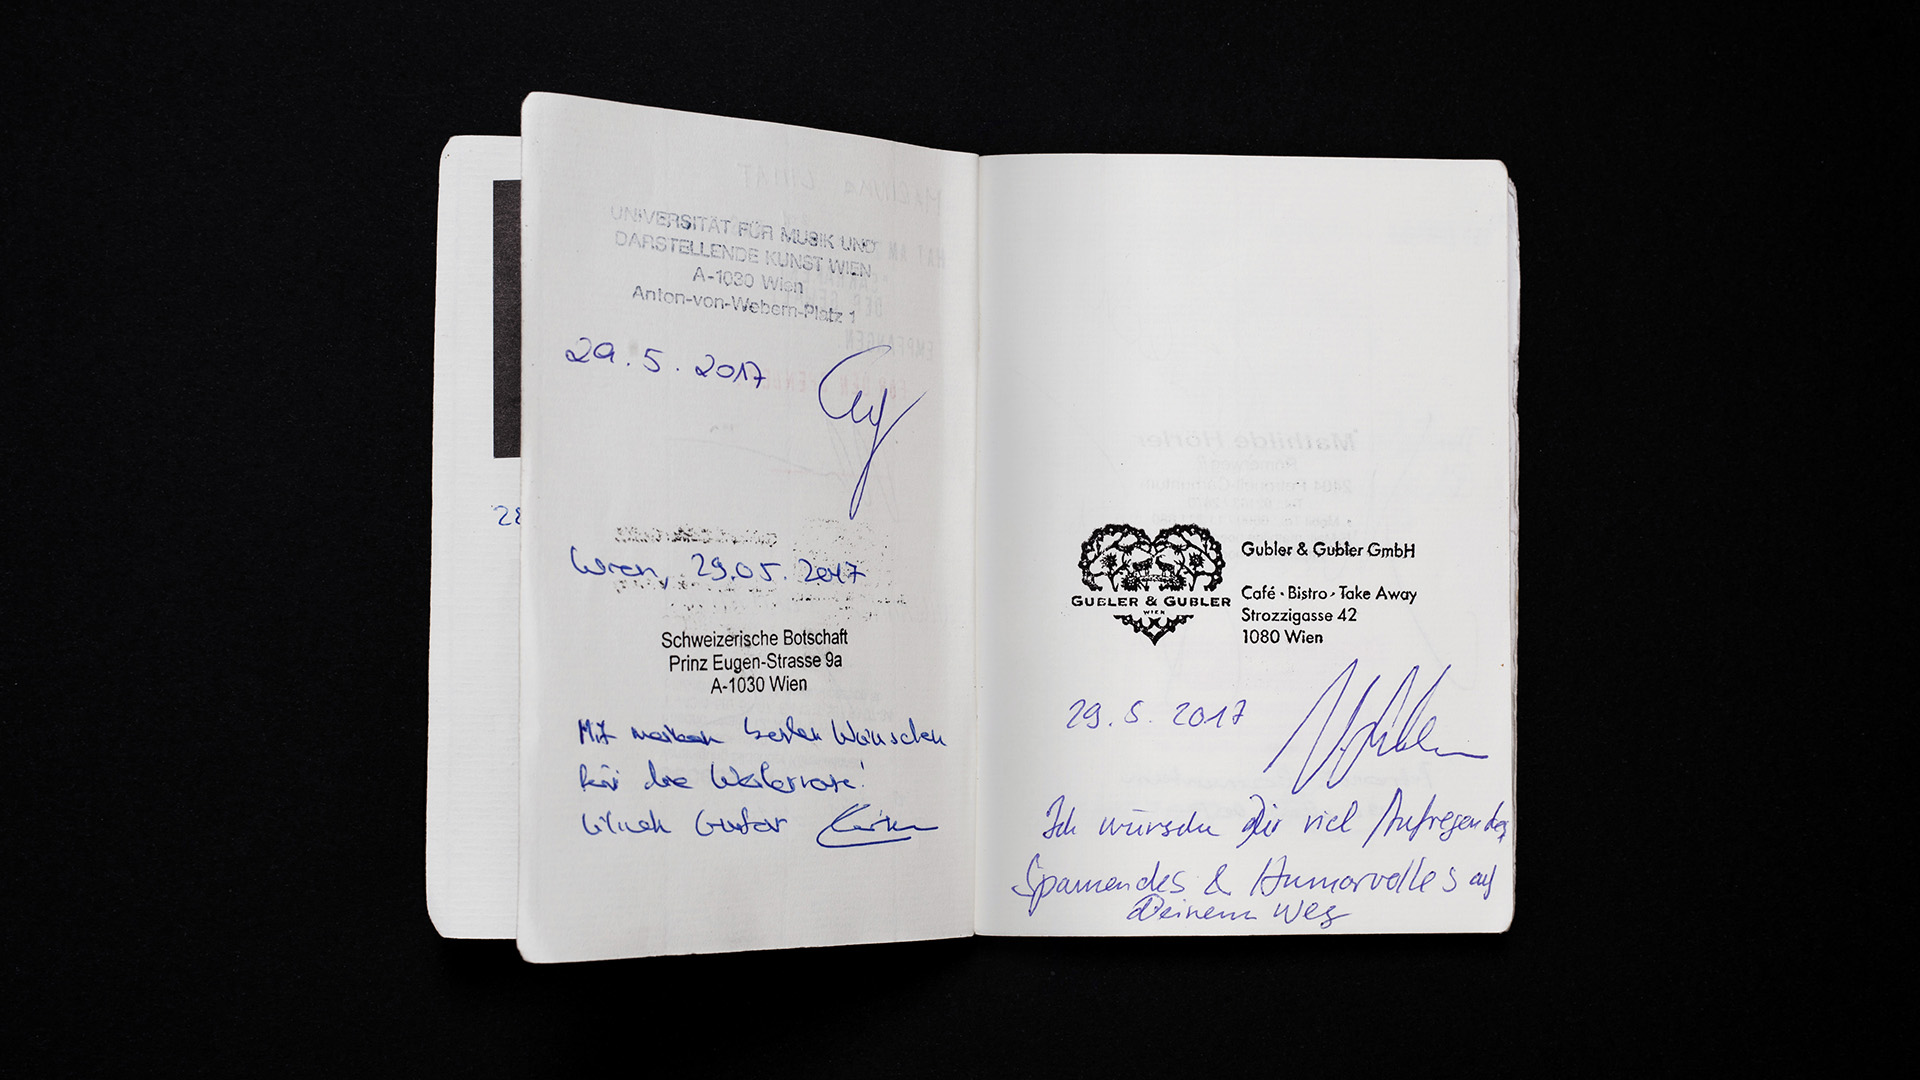 UNIVERSITÄT FÜR MUSIK UND
DARSTELLENDE KUNST WIEN
A-1030 Wien
Anton-von-Webern-Platz 1
29.5.2017
28
Wien, 29.05.2017
Schweizerische Botschaft
Prinz Eugen-Strasse 9a
A-1030 Wien
Mit meinen besten Wünschen
für die Weiterreise!
GUBLER & GUBLER
WIEN
Gubler & Gubler GmbH
Café · Bistro · Take Away
Strozzigasse 42
1080 Wien
29.5.2017
Ich wünsche Dir viel Aufregendes,
Spannendes & Humorvolles auf
Deinem Weg